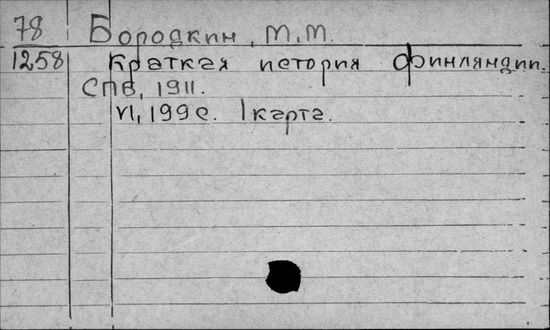 78 Бородкин, М.М.
1258 Краткая история Финляндии.
СПВ, 1911.
VI, 199 с. 1 карта.